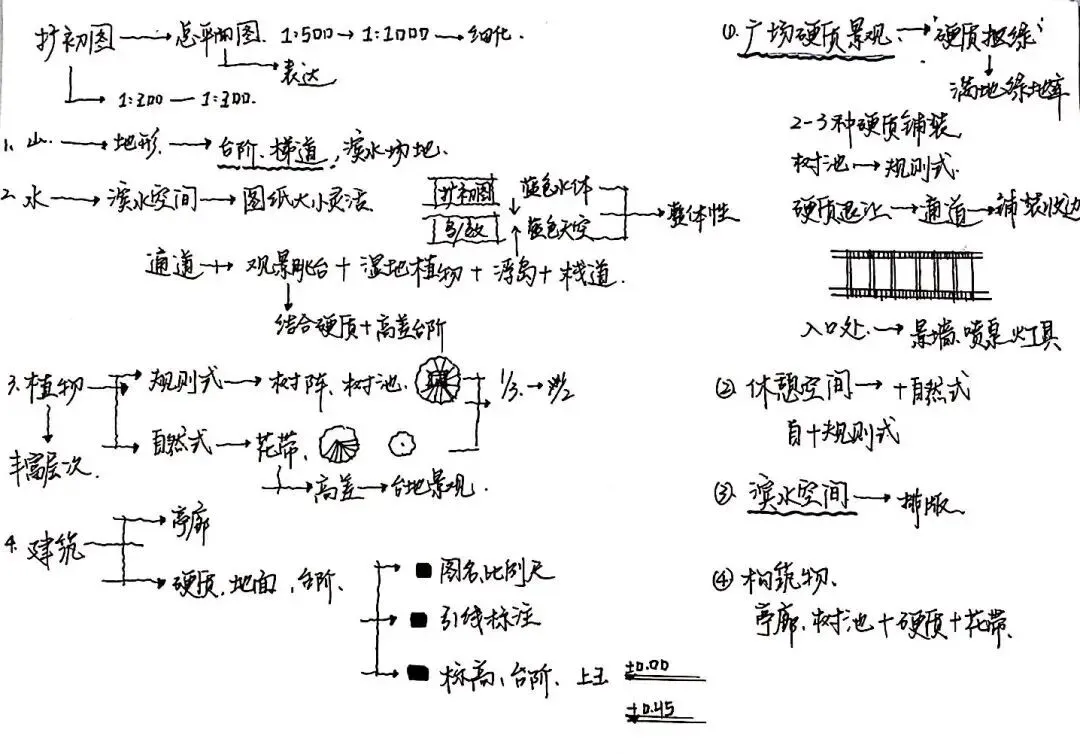 扩初图 → 总平面图. 1:500 → 1:1000 → 细化.
表达
1:200 — 1:300.
1. 山. → 地形. → 台阶、梯道, 滨水场地.
2. 水 → 滨水空间 → 图纸大小灵活.
扩初图 蓝色水体
鸟/效 蓝色天空
整体性
通道 → 观景眺台 + 湿地植物 + 浮岛 + 栈道.
结合硬质+高差台阶
3. 植物 规则式 → 树阵、树池. 1/3. → 1/2
自然式 → 花带、
丰富层次.
高差 → 台地景观.
4. 建筑 亭廊
硬质、地面、台阶、
图名、比例尺
引线标注
标高、台阶、 ±0.00
+0.45
①. 广场硬质景观. → "硬质报绿"
满地绿地库
2-3种硬质铺装.
树池 → 规则式.
硬质退让 → 通道 → 铺装收边
入口处. → 景墙、喷泉、灯具
② 休憩空间 → +自然式
自+规则式
③. 滨水空间 → 排版.
④ 构筑物.
亭廊、树池+硬质+花带.